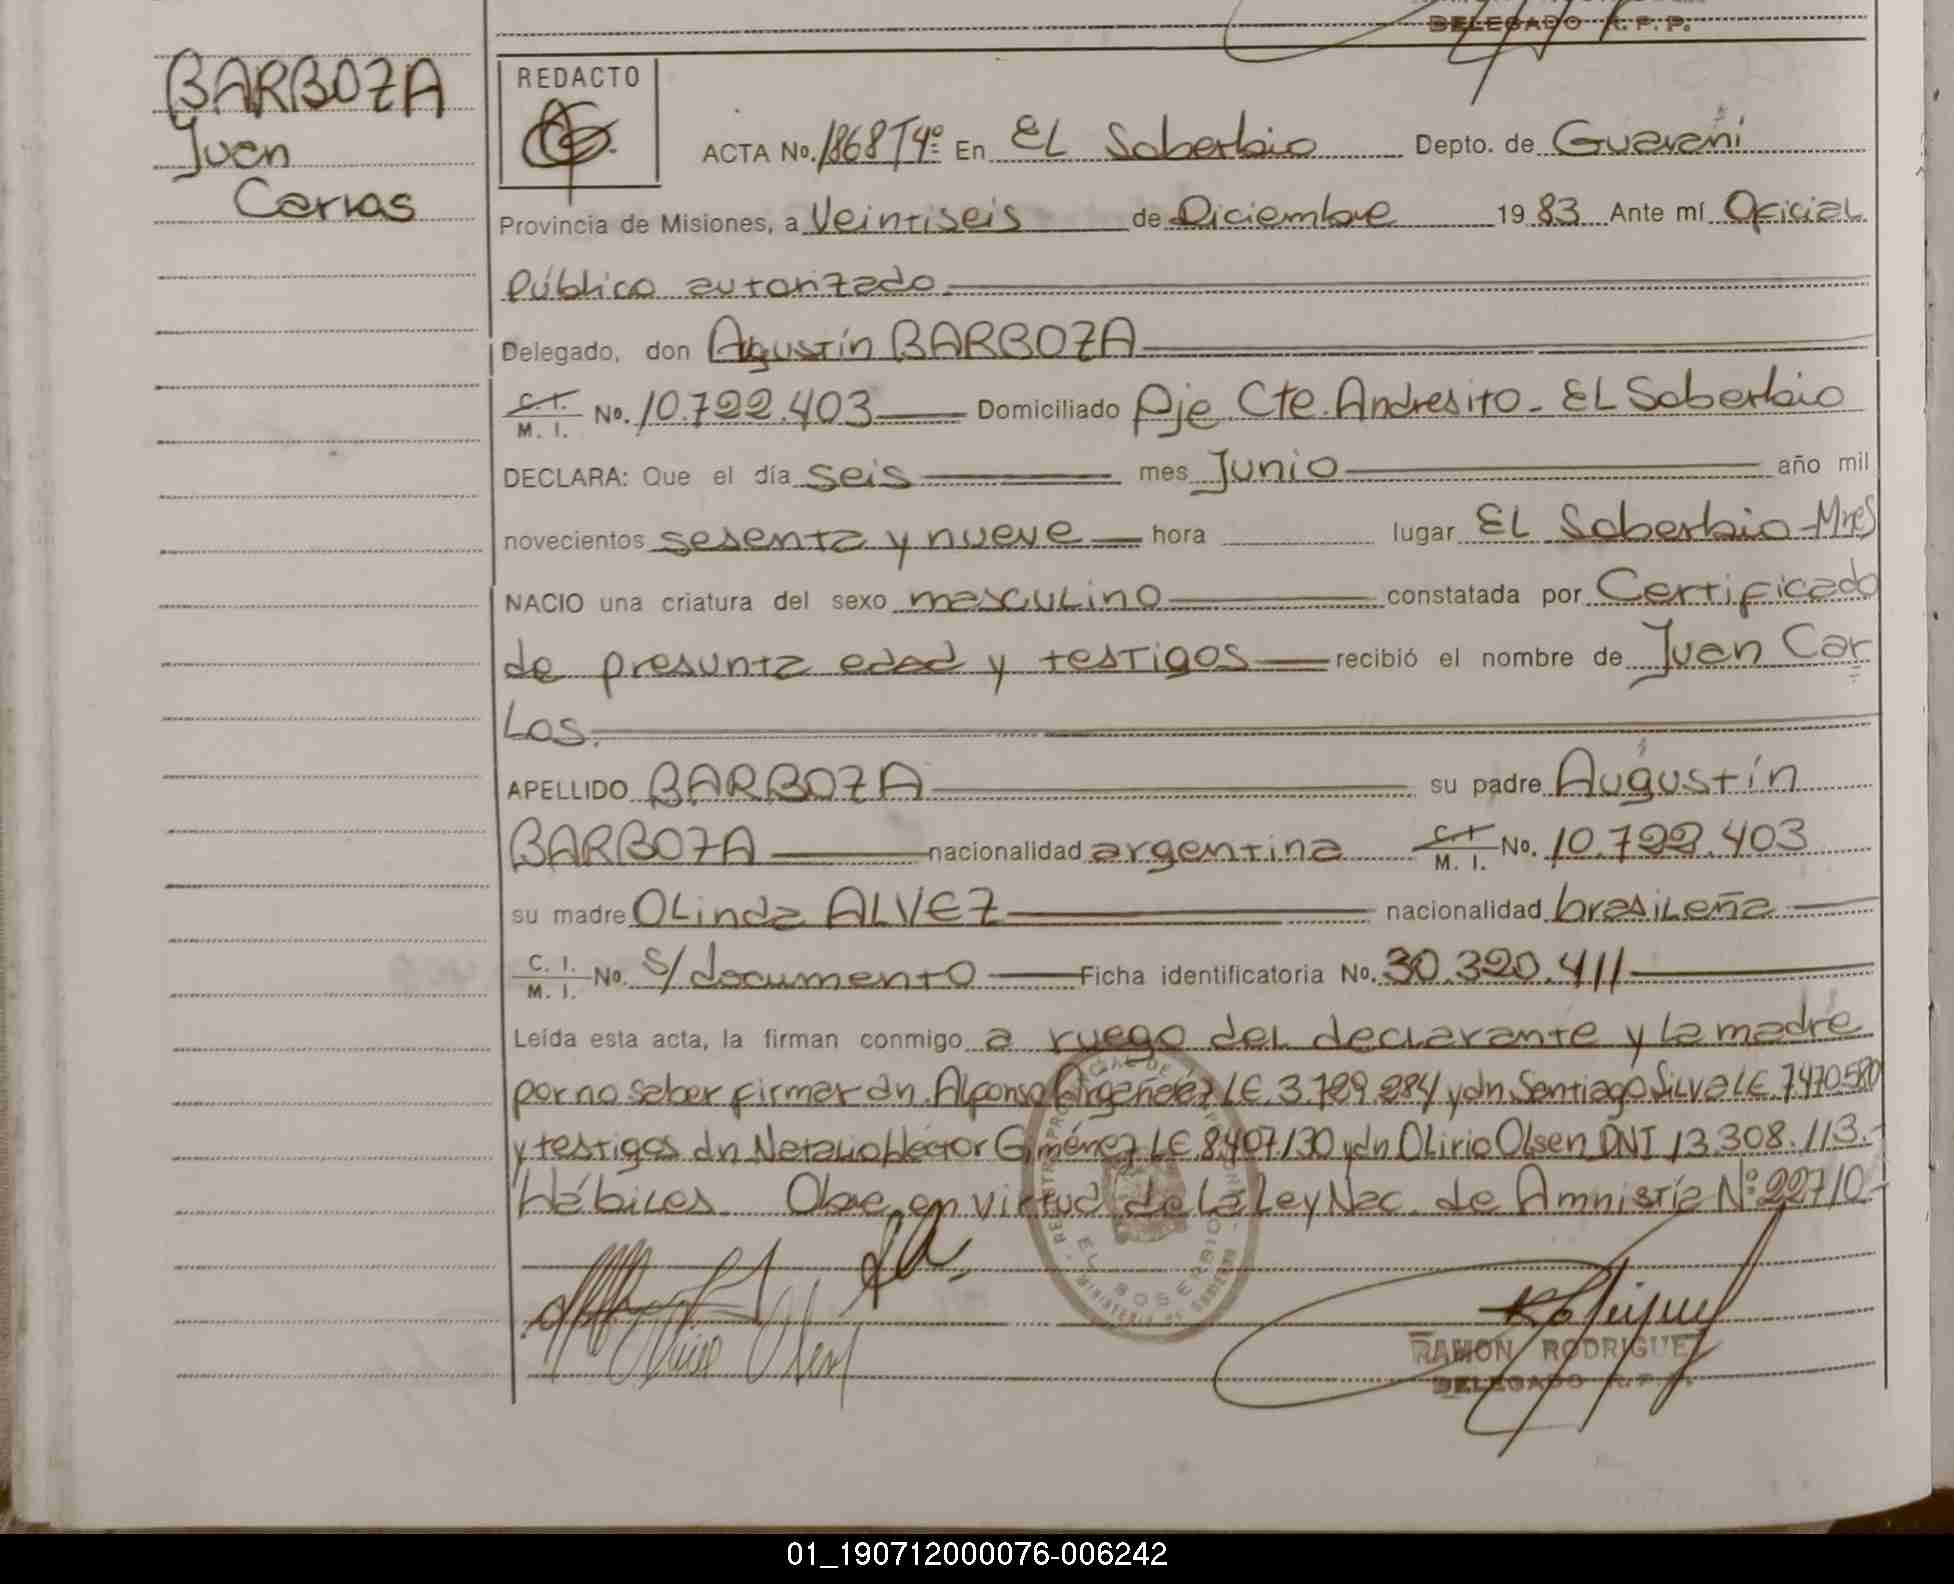 DELEGADO R.P.P.
BARBOZA
Juan
Carlos
REDACTO
ACTA No. 1868 T4º En EL Soberbio Depto. de Guaraní
Provincia de Misiones, a Veintiseis de Diciembre 19 83 Ante mí Oficial
Público autorizado.
Delegado, don Agustín BARBOZA
C.I. M. I. No. 10.722.403 Domiciliado Pje Cte. Andresito - EL Soberbio
DECLARA: Que el día seis mes Junio año mil
novecientos sesenta y nueve hora lugar EL Soberbio - Mnes
NACIO una criatura del sexo masculino constatada por Certificado
de presunta edad y testigos recibió el nombre de Juan Car
Los.
APELLIDO BARBOZA su padre Augustín
BARBOZA nacionalidad argentina C.I. M. I. No. 10.722.403
su madre OLinda ALVEZ nacionalidad brasileña
C. I. M. I. No. s/documento Ficha identificatoria No. 30.320.411
Leída esta acta, la firman conmigo a ruego del declarante y la madre
por no saber firmar dn. Alfonso Argañaraz LE. 3.789.284 y dn Santiago Silva LE. 7.470.580
y testigos dn Natalio Héctor Giménez LE 8.407.130 y dn Olirio Olsen DNI 13.308.113.-
Hábiles. Obre en virtud de la Ley Nac. de Amnistía Nº 22710.-
EL SOBERBIO
RAMON RODRIGUEZ
DELEGADO R.P.P.
01_190712000076-006242